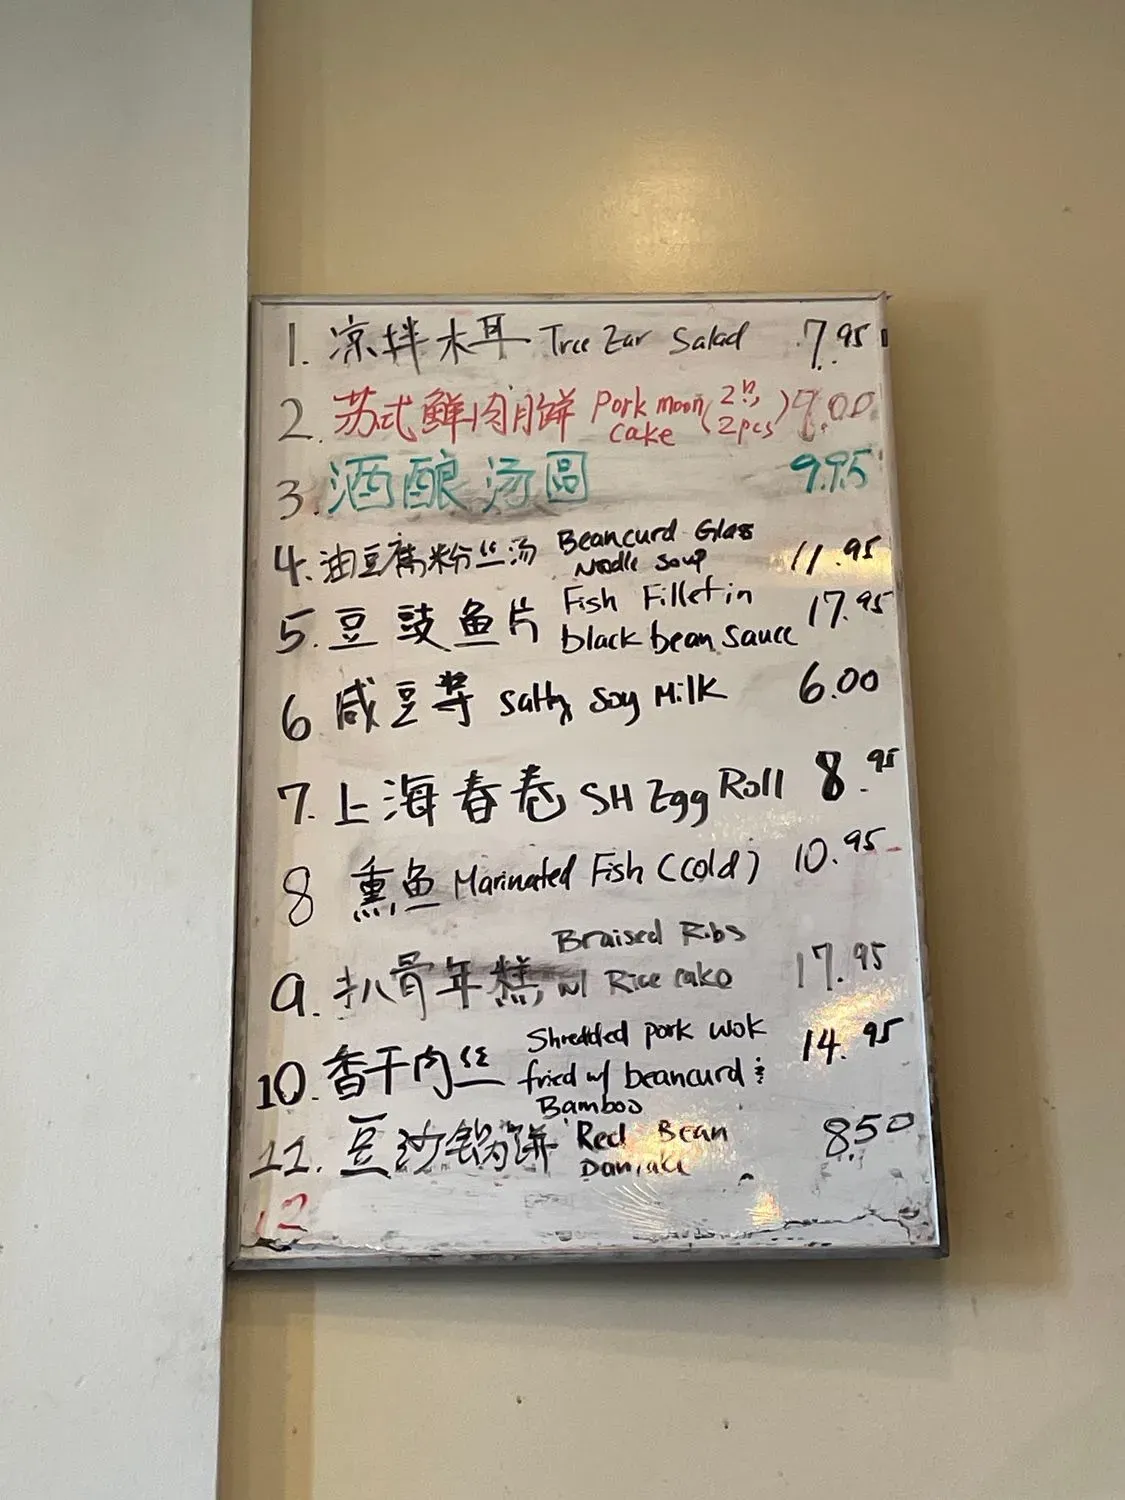 1. 凉拌木耳 Tree Ear Salad 7.95
2. 苏式鲜肉月饼 Pork moon cake (2只, 2pcs) 9.00
3. 酒酿汤圆 9.95
4. 油豆腐粉丝汤 Beancurd Glass Noodle Soup 11.95
5. 豆豉鱼片 Fish Fillet in black bean sauce 17.95
6 咸豆浆 Salty Soy Milk 6.00
7. 上海春卷 SH Egg Roll 8.95
8 熏鱼 Marinated Fish (cold) 10.95
9. 扒骨年糕 Braised Ribs w/ Rice cake 17.95
10. 香干肉丝 Shredded pork wok fried w/ beancurd & Bamboo 14.95
11. 豆沙锅饼 Red Bean 8.50
12